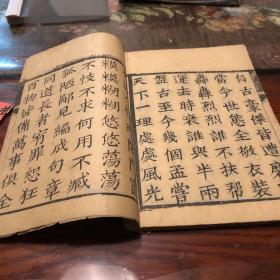 自古豪傑皆遭
當今世態全敬衣裝
轟轟烈烈誰不扶幫
運去時衰誰與半兩
盤古至今幾個孟嘗
天下一理處處風光
糢糢糊糊悠悠蕩蕩
不忮不求何用不臧
孤陋鄙見編成句章
同道長者宥罪恕狂
百物皆備萬事俱全